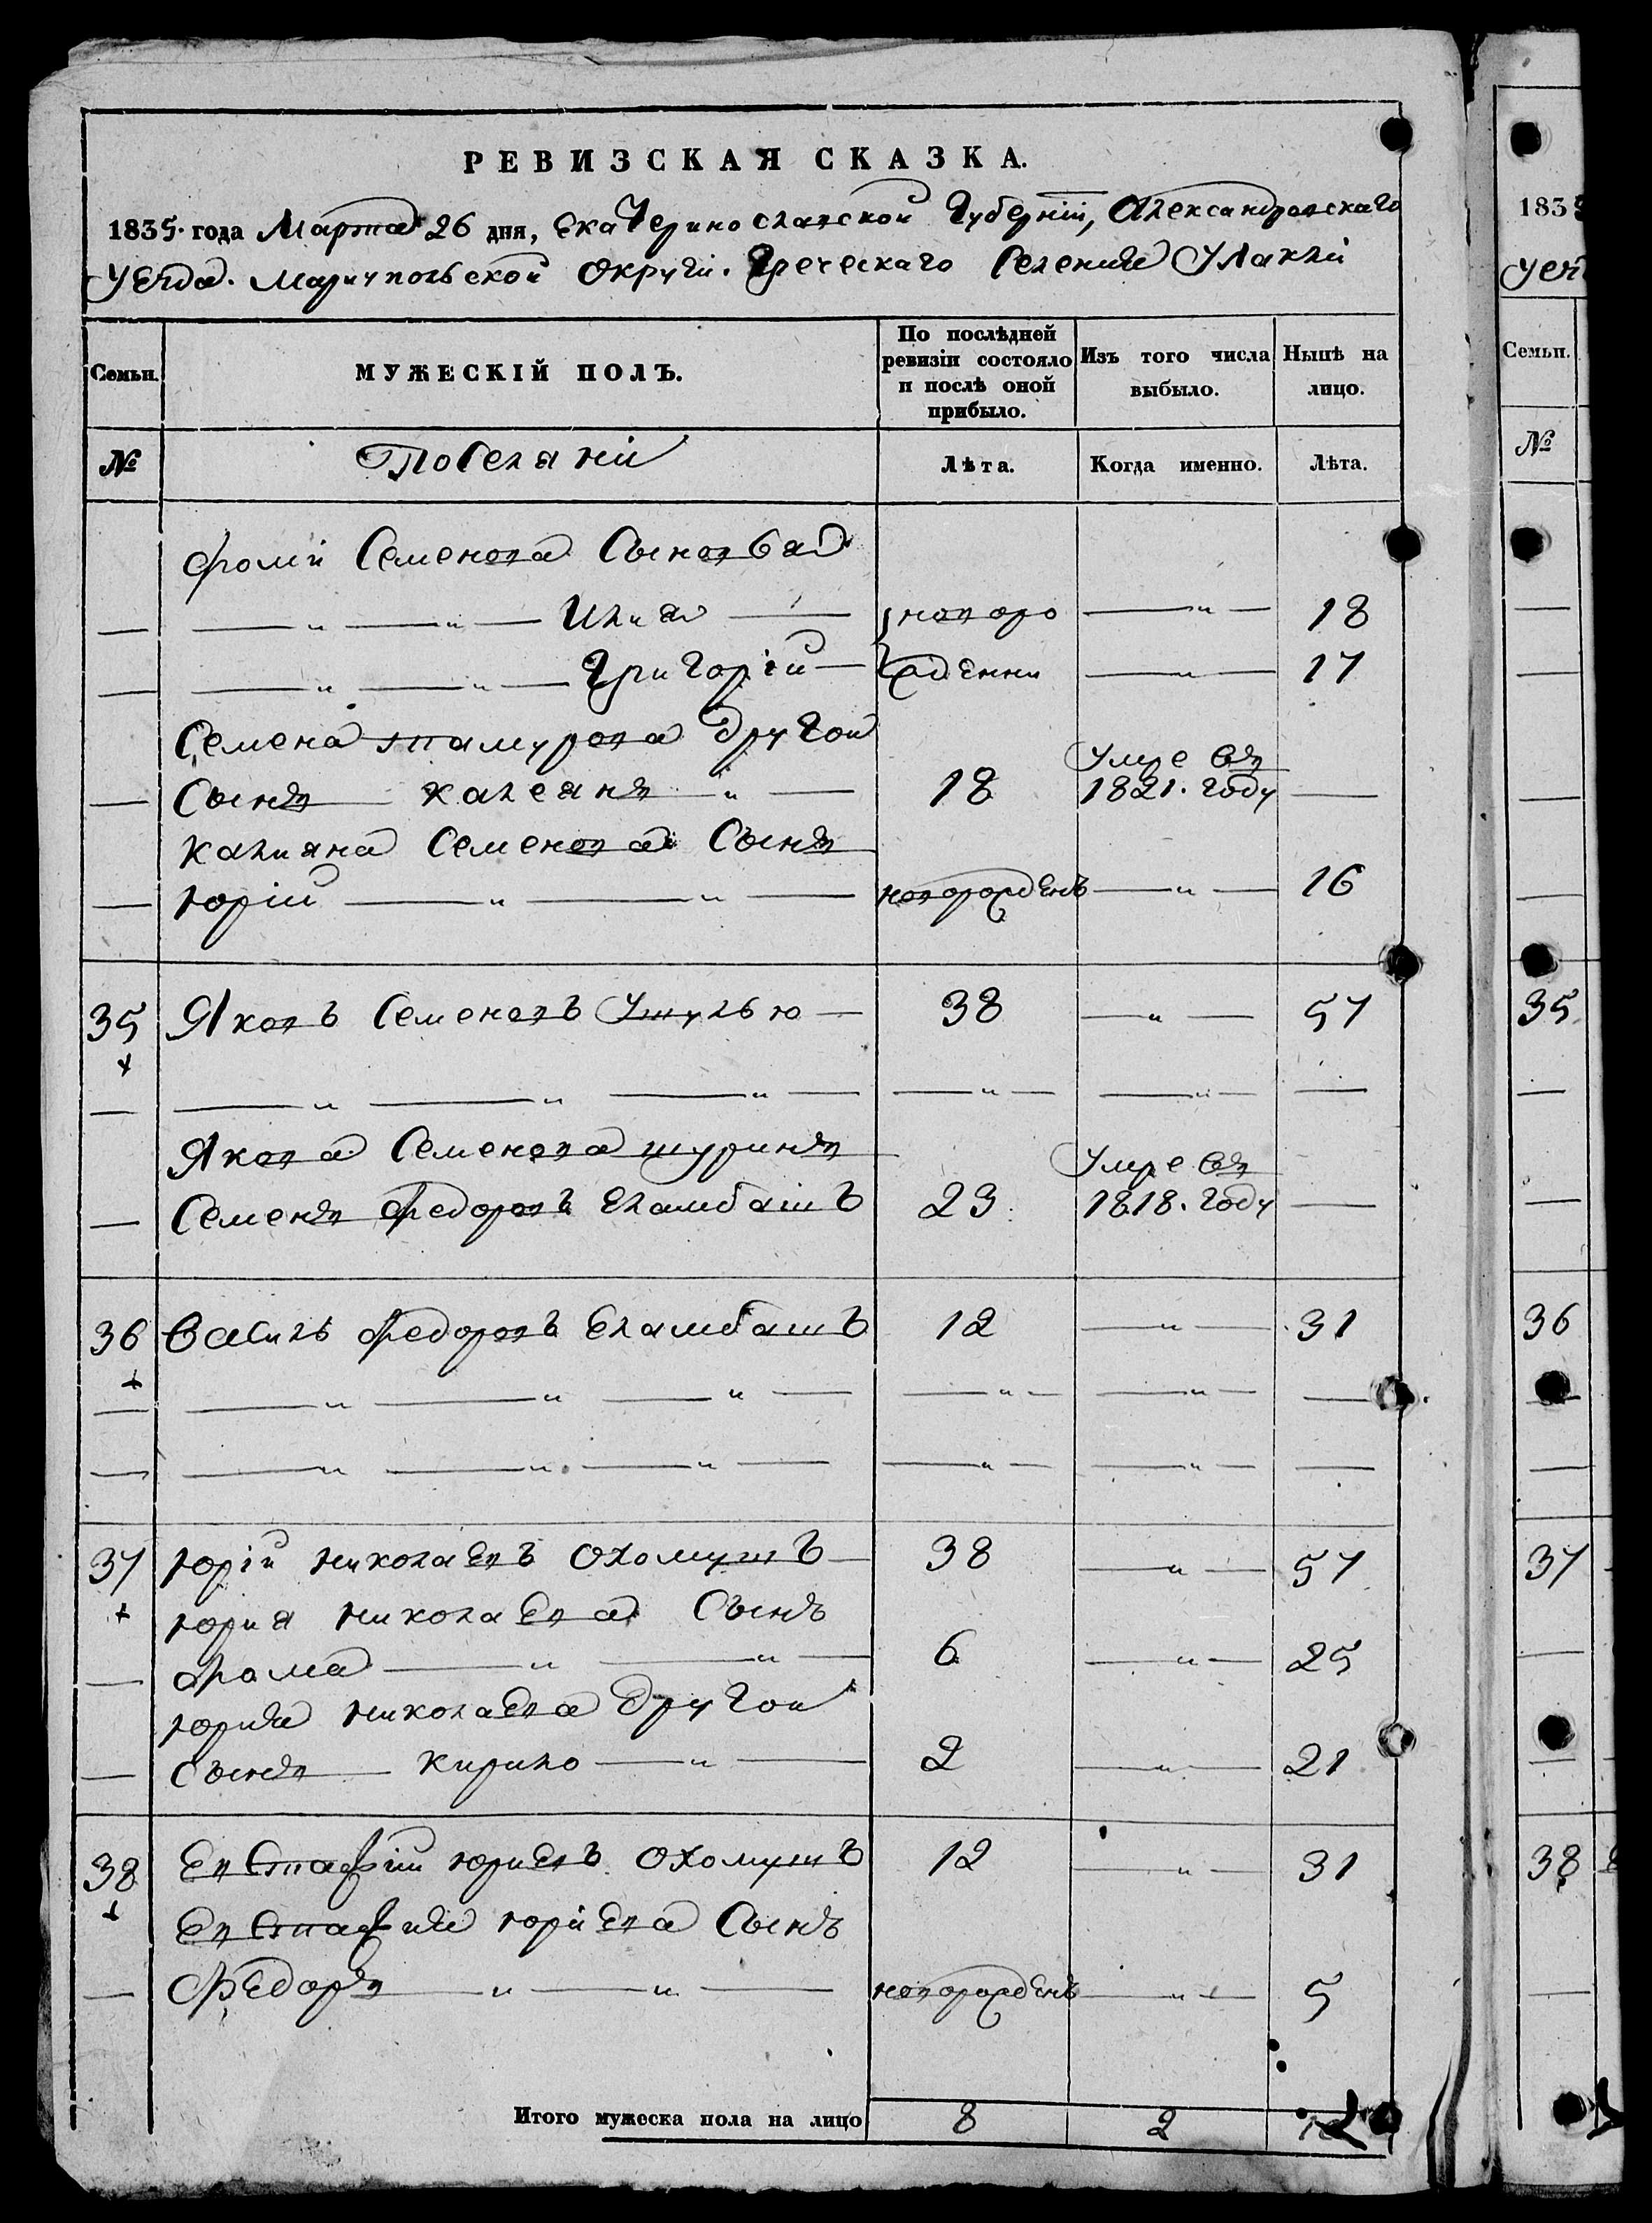 РЕВИЗСКАЯ СКАЗКА.
1835. года Марта 26 дня, Екатеринославской Губерніи, Александровскаго
Уезда. Мариупольской Округи. Греческаго Селения Улаклы
Семьи. МУЖЕСКІЙ ПОЛЪ. По послѣдней ревизіи состояло и послѣ оной прибыло. Изъ того числа выбыло. Нынѣ на лицо.
№ Поселяни Лѣта. Когда именно. Лѣта.
Фоми Семенова Сыновья
— " — " — Илия — новоро — " — 18
— " — " — Григорій — жденни — " — 17
Семена другой Умре въ
— Сынъ калеянъ — " — 18 1821. году —
калияна Семенова Сынъ
— юрій — " — " — новорожденъ — " — 16
35 Яковъ Семеновъ — 38 — " — 57
— — " — " — " — — " — — " — —
Якова Семенова шуринъ Умре въ
— Семенъ Федоровъ Еламбашъ 23 1818. году —
36 Василь Федоровъ Еламбашъ 12 — " — 31
— — " — " — " — — " — — " — —
— — " — " — " — — " — — " — —
37 юрій николаевъ Охомушъ — 38 — " — 57
юрия николаева Сынъ
— Фома — " — " — 6 — " — 25
юрия николаева другой
— Сынъ — кирило — " — 2 — " — 21
38 Евстафій юриевъ Охомушъ 12 — " — 31
Евстафия юріева Сынъ
— Федоръ — " — " — новорожденъ — " — 5
Итого мужеска пола на лицо 8 2
183
Семьи.
№
35
36
37
38